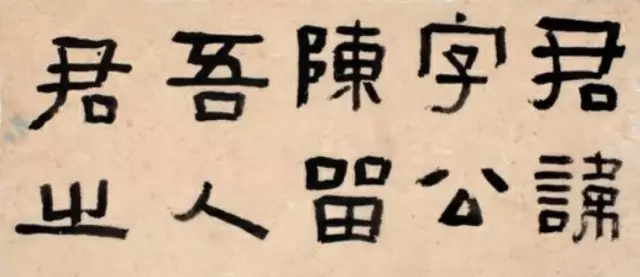 君諱
字公
陳留
吾人
君之